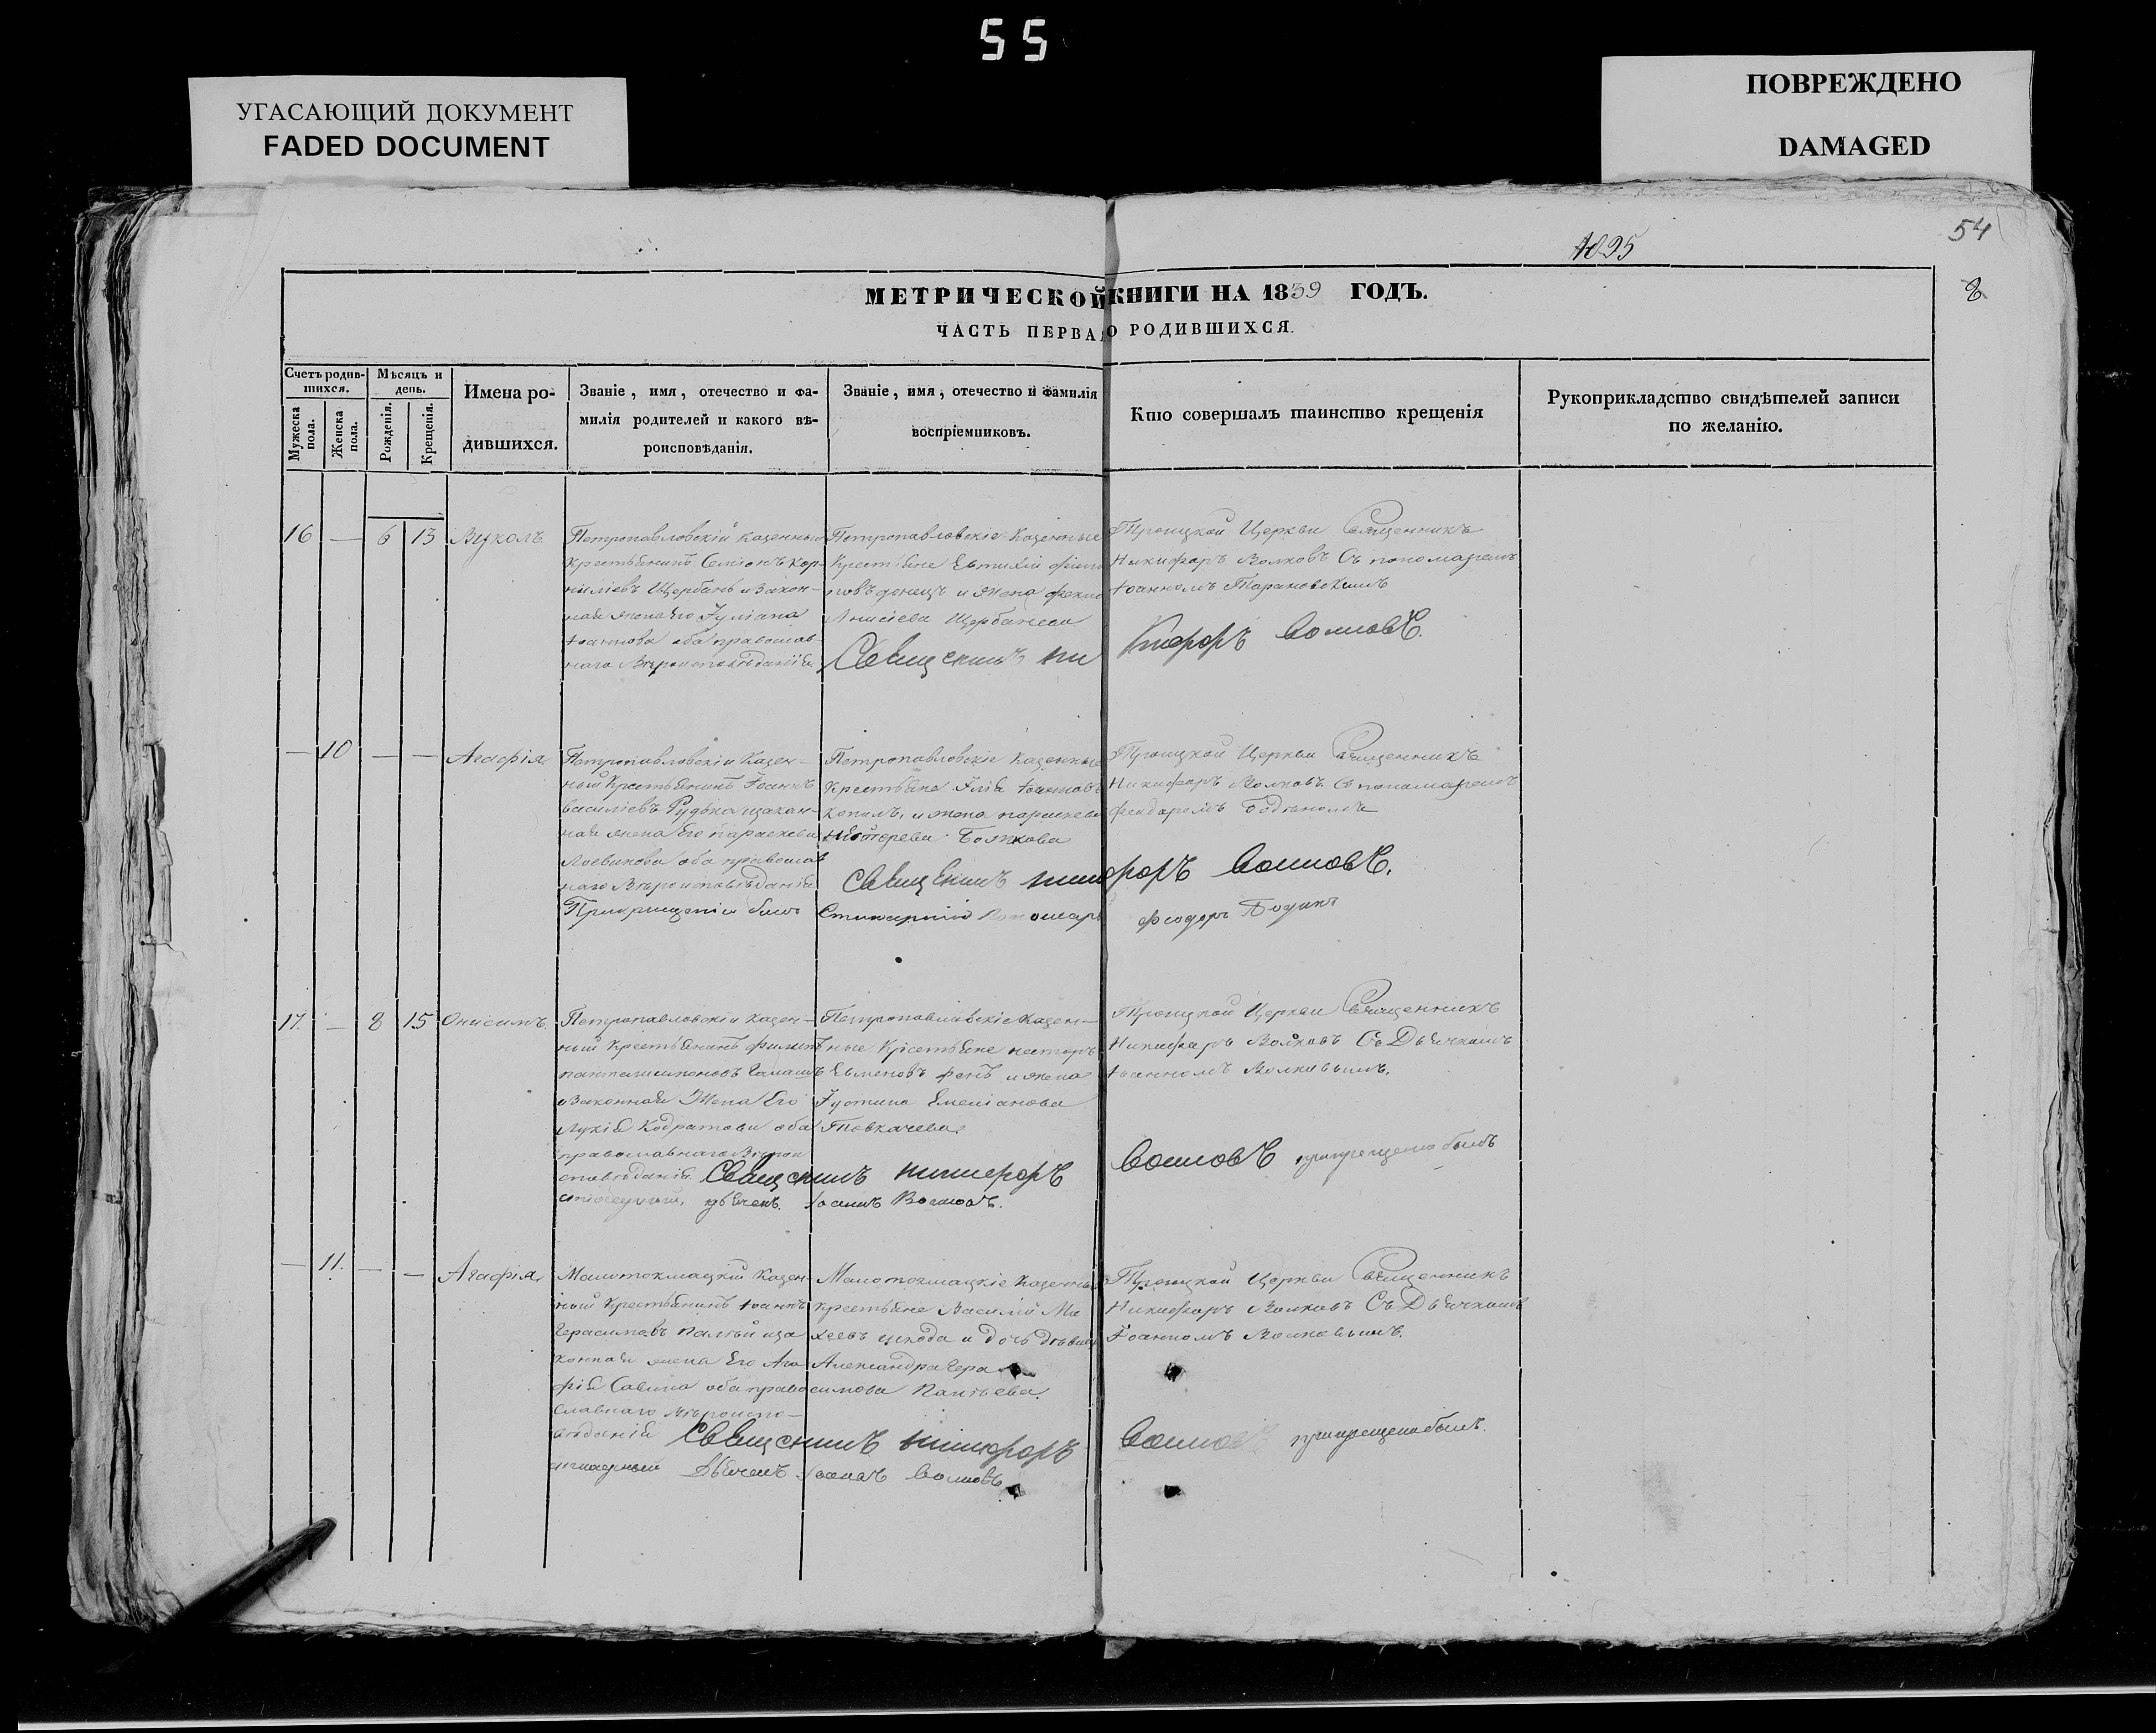 55
УГАСАЮЩИЙ ДОКУМЕНТ
FADED DOCUMENT
ПОВРЕЖДЕНО
DAMAGED
54
1095
8
МЕТРИЧЕСКОЙ КНИГИ НА 1839 ГОДЪ.
ЧАСТЬ ПЕРВАЯ О РОДИВШИХСЯ.
Счетъ родившихся.
Мужеска пола.
Женска пола.
Мѣсяцъ и день.
Рожденія.
Крещенія.
Имена родившихся.
Званіе, имя, отечество и фа-
милія родителей и какого вѣ-
роисповѣданія.
Званіе, имя, отечество и фамилія
воспріемниковъ.
Кто совершалъ таинство крещенія
Рукоприкладство свидѣтелей записи
по желанію.
16 — 6 13 Вуколъ
Петропавловскій казенный
крестьянинъ Семіонъ Кор-
ниліевъ Щербань и закон-
ная жена Его Іуліана
Іоаннова оба православ-
наго Вѣроисповѣданія
Петропавловскіе казенные
Крестьяне Евтихій
донецъ и жена
Анисіева Щербанева
Троицкой Церкви Священникъ
Никифоръ Волковъ Съ пономаремъ
Іоанномъ Тарановскимъ
Священникъ Никифоръ Волковъ.
— 10 — — Агафія
Петропавловскій Казен-
ный Крестьянинъ Іоаннъ
Василіевъ Рудька и закон-
ная жена Его Параскева
оба православ
наго Вѣроисповѣданія
Петропавловскіе Казенные
Крестьяне Илія Іоанновъ
и жена параскева
Божкова
Троицкой Церкви Священникъ
Никифоръ Волковъ Съ пономаремъ
Феодоромъ
Священникъ Никифоръ Волковъ.
При крещеніи былъ Стихарный Пономарь Феодоръ
17. — 8 15 Онисимъ
Петропавловскій Казен-
ный Крестьянинъ Филипъ
пантелеимоновъ
и законная Жена Его
Лукія Кодратова оба
православнаго Вѣрои
споведанія
Петропавловскіе Казен-
ные Крестьяне нестеръ
Евменовъ и жена
Іустина Емеліанова
Товкачева.
Троицкой Церкви Священникъ
Никифоръ Волковъ Съ Дьячкомъ
Іоанномъ Волковымъ.
Священникъ Никифоръ Волковъ при крещеніи былъ
стихарный дьячекъ Іоаннъ Волковъ.
— 11. — — Агафія
Малотокмацкій Казен-
ный Крестьянинъ Іоаннъ
Герасимовъ Палтьй и за
конная жена Его Ага
фія Савина оба право
славнаго Вѣроиспо-
вѣданія
Малотокмацкіе Казенные
крестьяне Василій Ми
хеевъ и дочь дѣвица
Александра Гера
симова Палтьева.
Троицкой Церкви Священникъ
Никифоръ Волковъ Съ Дьячкомъ
Іоанномъ Волковымъ.
Священникъ Никифоръ Волковъ при крещеніи былъ.
стихарный Дьячекъ Іоаннъ Волковъ